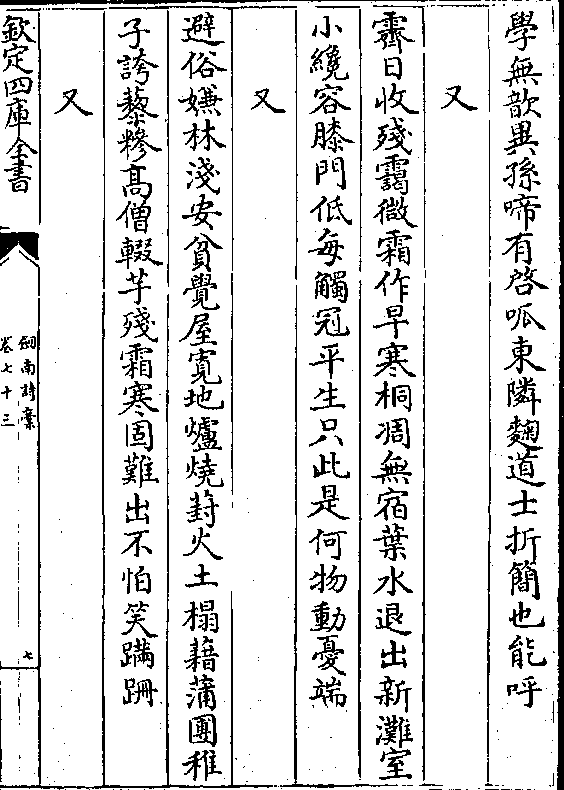 學無歆異孫啼有啓呱東隣麴道士折簡也能呼
又
霽日收殘靄微霜作早寒桐凋無宿葉水退出新灘室
小纔容膝門低每觸冠平生只此是何物動憂端
又
避俗嫌林淺安貧覺屋寛地爐燒葑火土榻藉蒲團稚
子誇藜糝髙僧輟芋殘霜寒固難出不怕笑蹣跚
又
欽定四庫全書
劒南詩藁
卷七十三
七